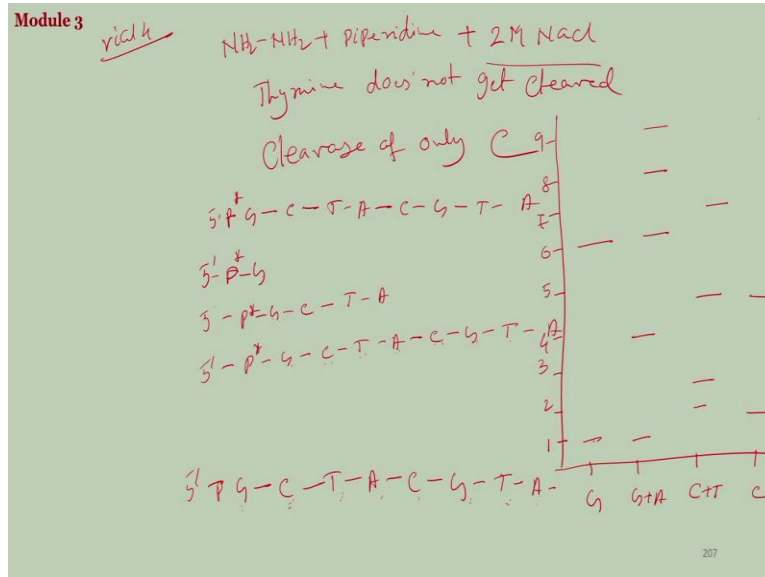 Module 3
vial 4
NH2-NH2 + Piperidine + 2M Nacl
Thymine does not get cleaved
Cleavage of only C
5' P* G - C - T - A - C - G - T - A
5' - P* - G
5' - P* - G - C - T - A
5' - P* - G - C - T - A - C - G - T - A
5' P G - C - T - A - C - G - T - A -
9
8
7
6
5
4
3
2
1
G G+A C+T C
207